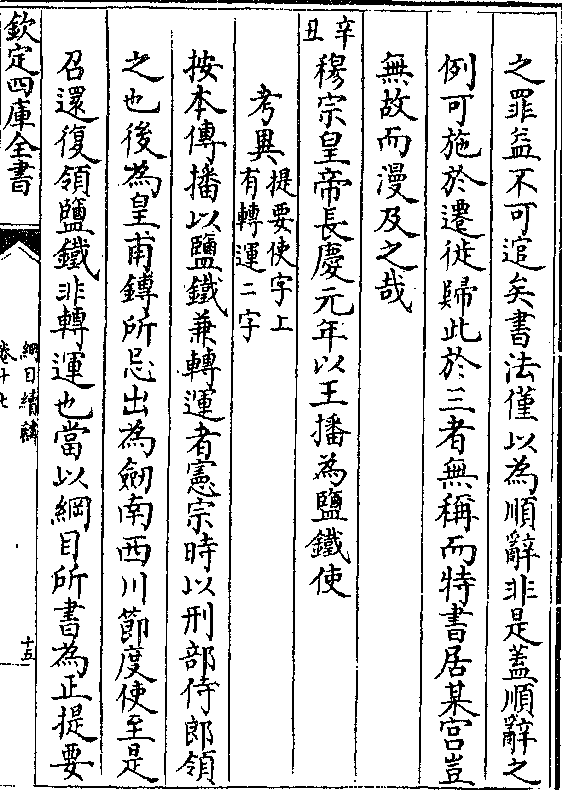 之罪益不可逭矣書法僅以為順辭非是蓋順辭之
例可施於遷徙歸此於三者無稱而特書居某宮豈
無故而漫及之哉
辛丑
穆宗皇帝長慶元年以王播為鹽鐵使
考異提要使字上
有轉運二字
按本傳播以鹽鐵兼轉運者憲宗時以刑部侍郎領
之也後為皇甫鎛所忌出為劒南西川節度使至是
召還復領鹽鐵非轉運也當以綱目所書為正提要
欽定四庫全書
綱目續麟
卷十七
十五